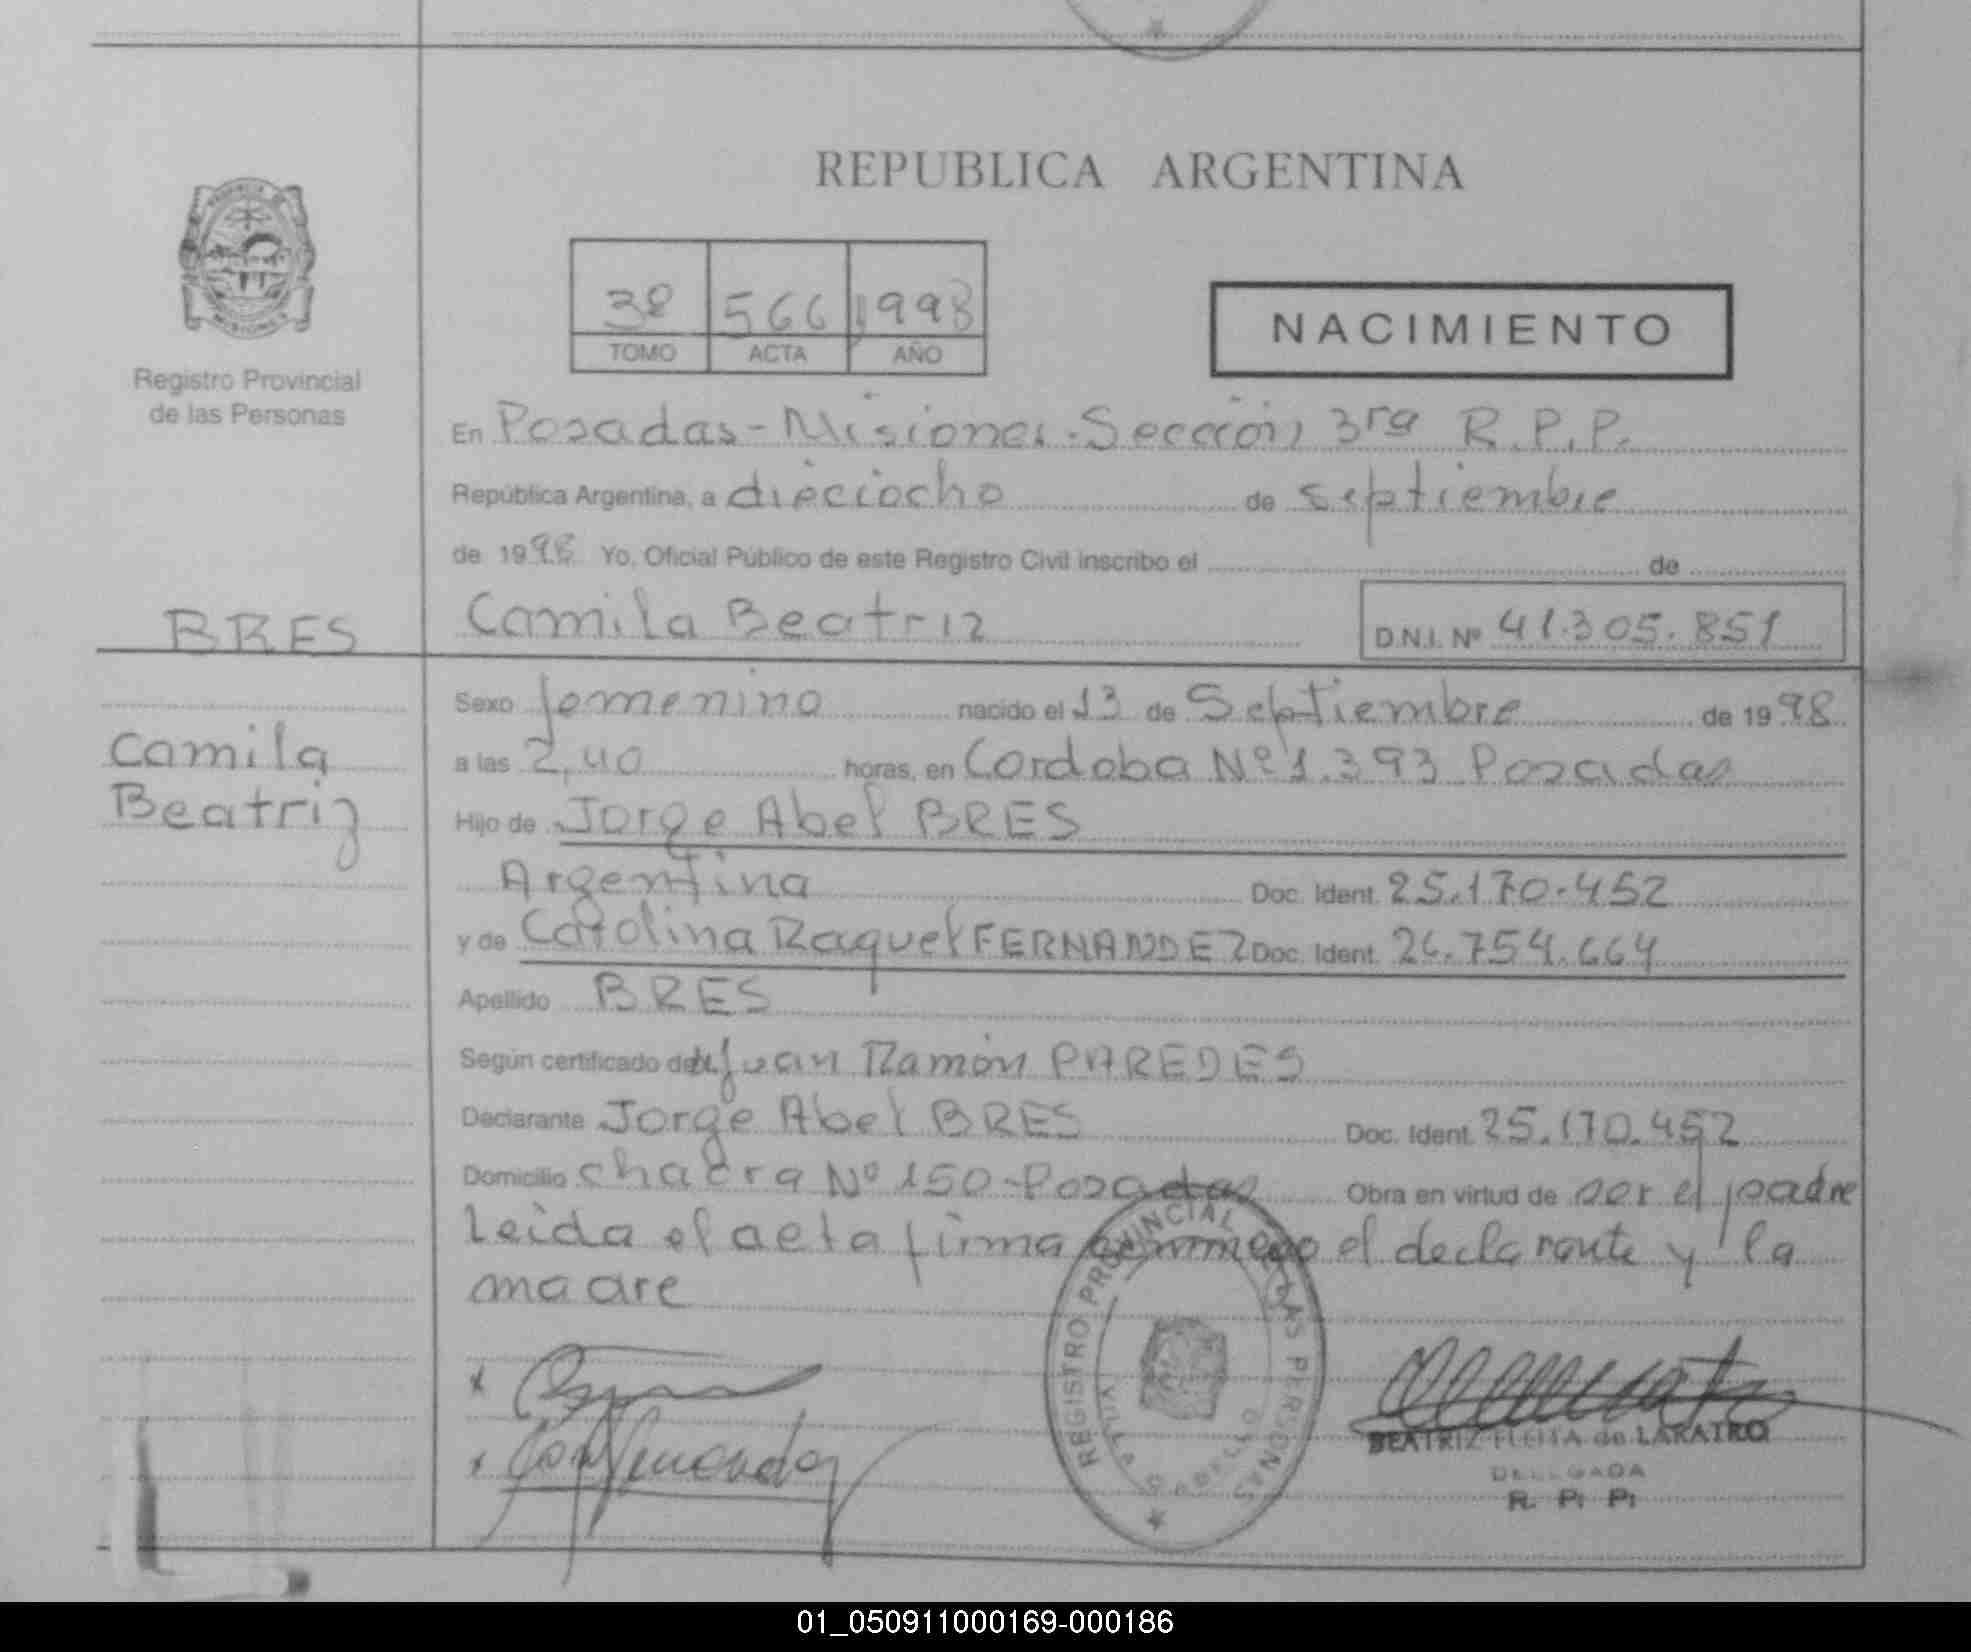 REPUBLICA ARGENTINA
3º 566 1998
TOMO ACTA AÑO
NACIMIENTO
Registro Provincial
de las Personas
En Posadas - Misiones. Sección 3ra R.P.P.
República Argentina, a dieciocho de septiembre
de 1998 Yo, Oficial Público de este Registro Civil inscribo el de
BRES
Camila Beatriz D.N.I. Nº 41.305.851
Camila
Beatriz
Sexo femenino nacido el 13 de Septiembre de 1998
a las 2,40 horas, en Cordoba Nº 1.393 Posadas
Hijo de Jorge Abel BRES
Argentina Doc. Ident. 25.170.452
y de Catolina Raquel FERNANDEZ Doc. Ident. 26.754.664
Apellido BRES
Según certificado de Juan Ramón PAREDES
Declarante Jorge Abel BRES Doc. Ident. 25.170.452
Domicilio chacra Nº 150 - Posadas Obra en virtud de ser el padre
Leida el acta firma conmigo el declarante y la
madre
REGISTRO PROVINCIAL DE LAS PERSONAS
BEATRIZ FLEITA de LARATRO
DELEGADA
R. P. P.
01_050911000169-000186